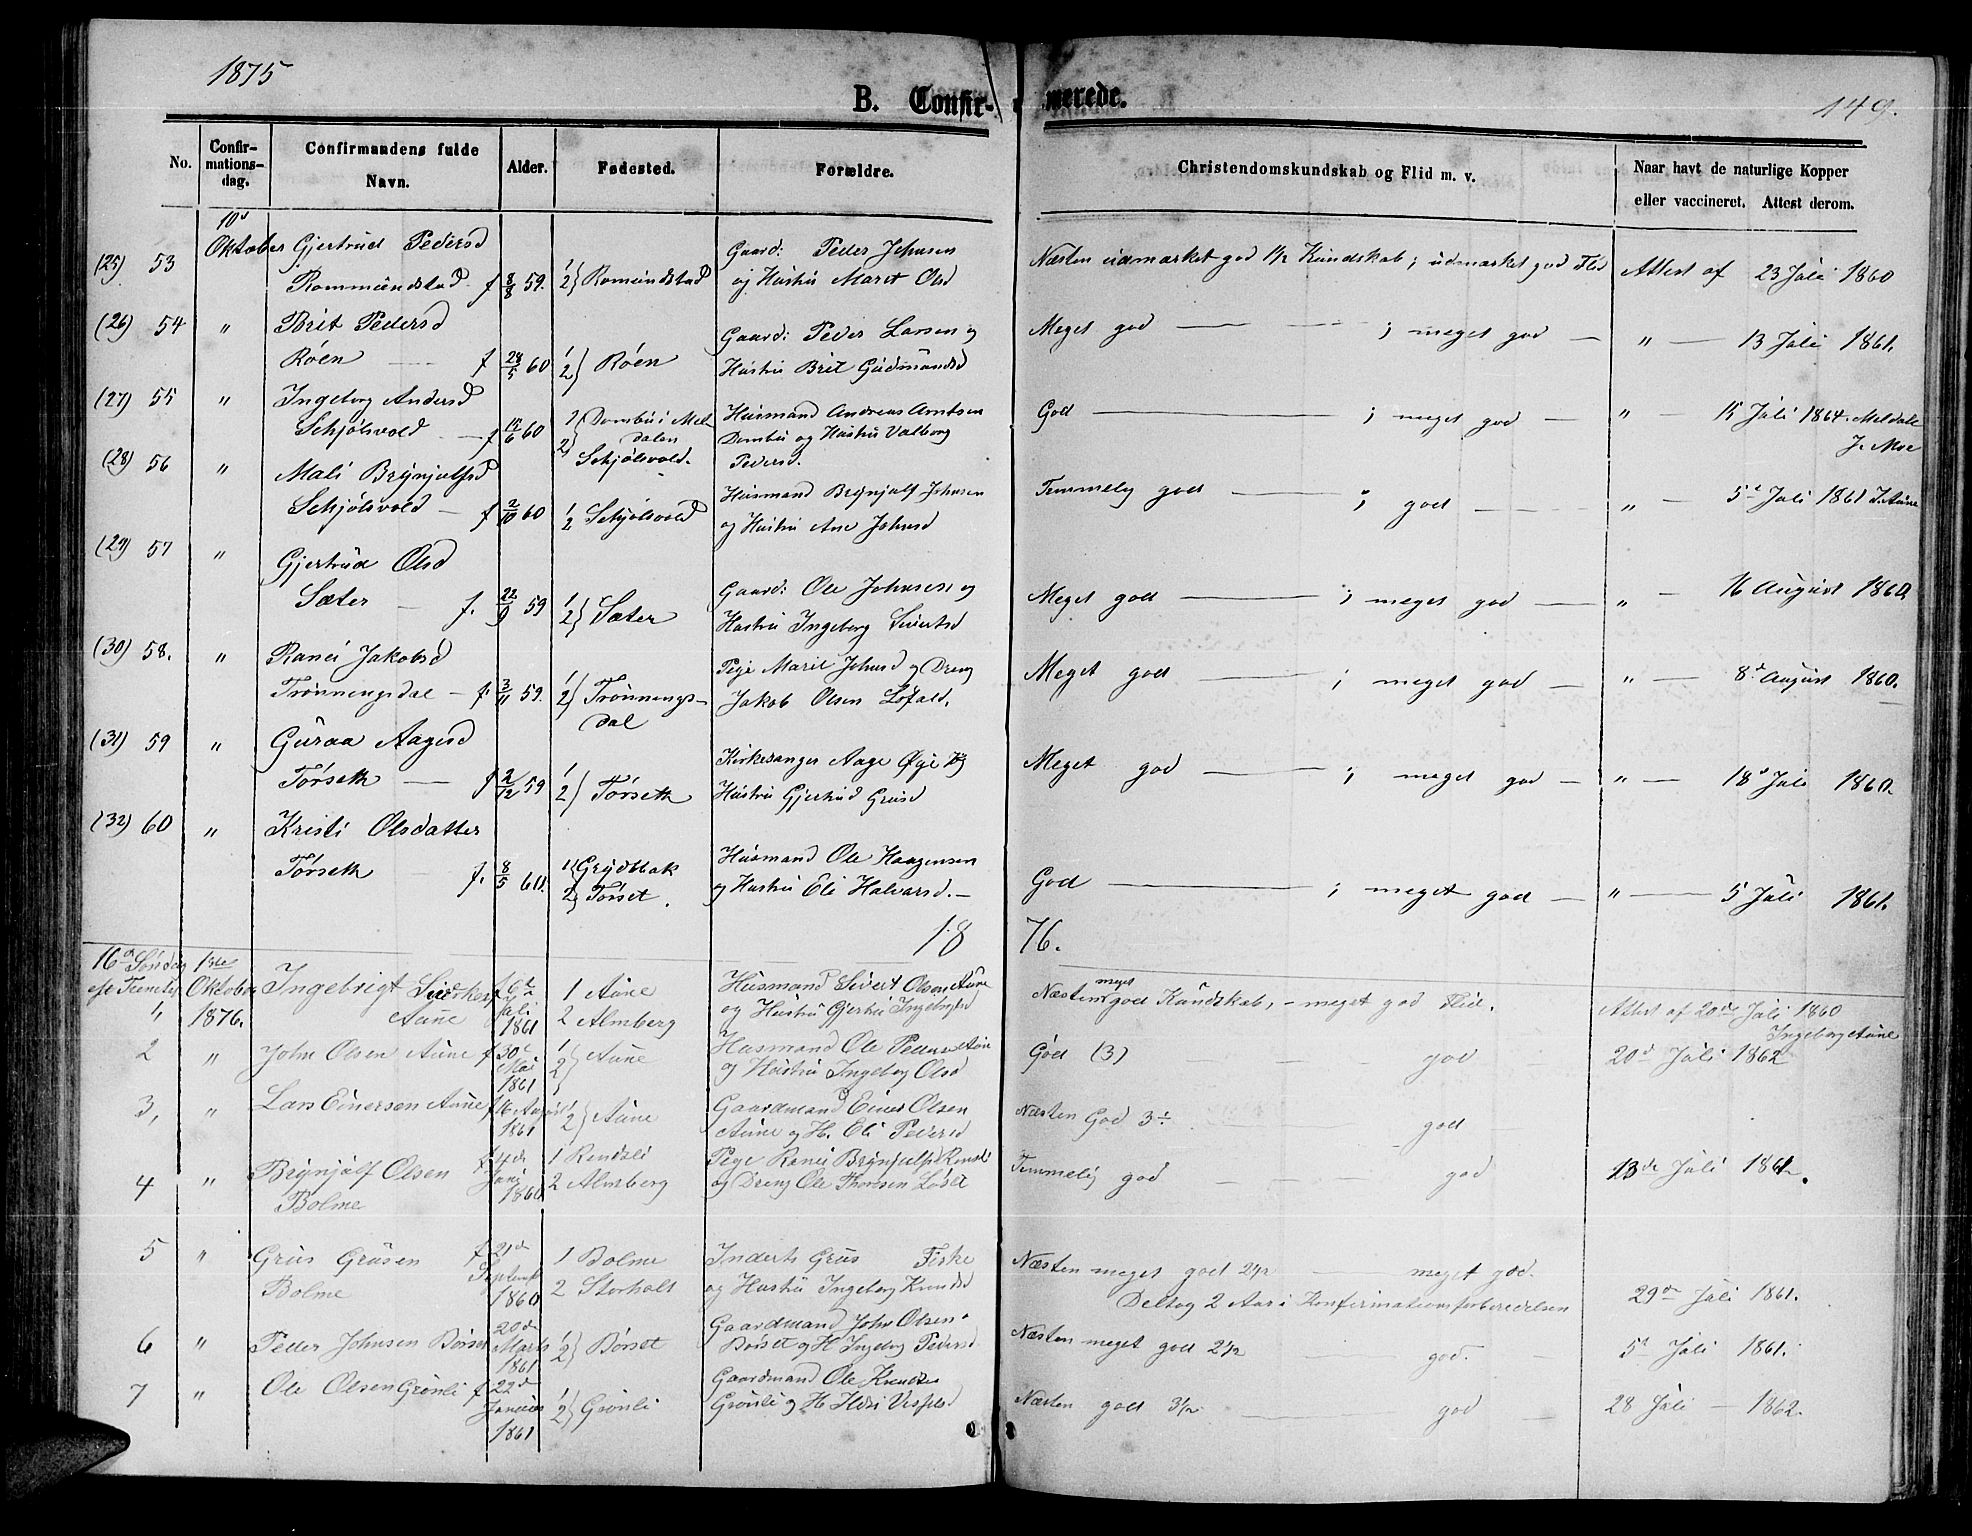 1875
B. Confir-
merede.
149.
No.
Confir-
mations-
dag.
Confirmandens fulde
Navn.
Alder.
Fødested.
Forældre.
Christendomskundskab og Flid m. v.
Naar havt de naturlige Kopper
eller vaccineret. Attest derom.
10d
(25) 53 Oktober Gjertrud Pedersd Gaard: Peder Johnsen Næsten udmærket god 1½ Kundskab; udmærket god Flid Attest af 23 Juli 1860
Rommundstad f 8/8 59. 1/2} Romundstad og Hustru Maret Olsd
(26) 54 " Brit Pedersd Gaard: Peder Larsen og Meget god — ; meget god — " — 13 Juli 1861.
Røen — f 24/5 60 1/2} Røen Hustru Brit Gudmundsd
(27) 55 " Ingeborg Andersd Husmand Andreas Arntsen God — ; meget god — " — 15 Juli 1864. Meldale
Schjølsvold — f 14/6 60 1 Dombu i Mel- Dombu og Hustru Valborg J. Moe
dalen
2} Schjølsvold. Pedersd.
(28) 56 " Mali Brynjulfsd Husmand Brynjulf Johnsen Temmelig god — ; god — " — 5t Juli 1861 J. Aune
Schjølsvold — f 2/10 60 1/2 Schjølsvold og Hustru Ane Johnsd
(29) 57 " Gjertrud Olsd
Sæter — f. 22/9 59 1/2} Sæter Gaard: Ole Johnsen og Meget god — ; meget god — " — 16 August 1860
Hustru Ingeborg Sivertsd
(30) 58. " Ranei Jakobsd Pige Marit Johnsd og Dreng Meget god — ; meget god — " — 8d August 1860.
Trønningsdal — f. 3/11 59. 1/2} Trønnings- Jakob Olsen Løfald.
dal
(31) 59 " Guraa Aagesd Kirkesanger Aage Øye og Meget god — ; meget god — " — 18d Juli 1860.
Tørseth — f 2/12 59 1/2} Tørseth Hustru Gjertrud Grusd
(32) 60 " Kristi Olsdatter
Tørseth — f. 8/5 60. 1 Grydbak Husmand Ole Haagensen God — ; meget god — " — 5 Juli 1861.
2} Tørset. og Hustru Eli Halvarsd. —
18 76.
16d Søndag 1ste
eft Trinitis Oktober Ingebrigt f 6te 1 Aune Husmand Sivert Olsen Aune Næsten meget god Kundskab, — meget god Flid. Attest af 20de Juli 1860
1, 1876. Aune Juli 1861 2 Almberg og Hustru Gjertru Ingebrigtsd Ingeborg Aune
2 " John Olsen Aune f 30te Mai 1861 1/2} Aune Husmand Ole Pedersen Aune God (3) — god — 20d Juli 1862
og Hustru Ingeborg Olsd
3, " Lars Einersen Aune f 6 1861 1/2} Aune Gaardmand Einer Olsen Næsten God 3÷ — god
Aune og H. Eli Pedersd
4 " Brynjulf Olsen f 4de Juni 1860 1 Rendsli Pige Ranei Brynjulfsd Temmelig god — god 13de Juli 1861.
Bolme 2 Almberg og Dreng Ole Thoresen
5 " Grus Grusen f 21d 1 Bolme Inderts Grus Fiske Næsten meget god 2½ — meget god.
Bolme Septemb 1860 2 Storholt og Hustru Ingeborg Knudsd Deltog 2 Aar i Konfirmationsforberedelsen 29de Juli 1861.
6 " Peder Johnsen Børset 20de Marts 1861 1/2} Børset Gaardmand John Olsen Næsten meget god 2½ — god. 5t Juli 1861.
Børset og H Ingeborg Pedersd
7 " Ole Olsen Grønli f 22d Januar 1861 1/2} Grønli Gaardmand Ole Knudsen Næsten god 3½ — god — 28 Juli — 1862.
Grønli og H